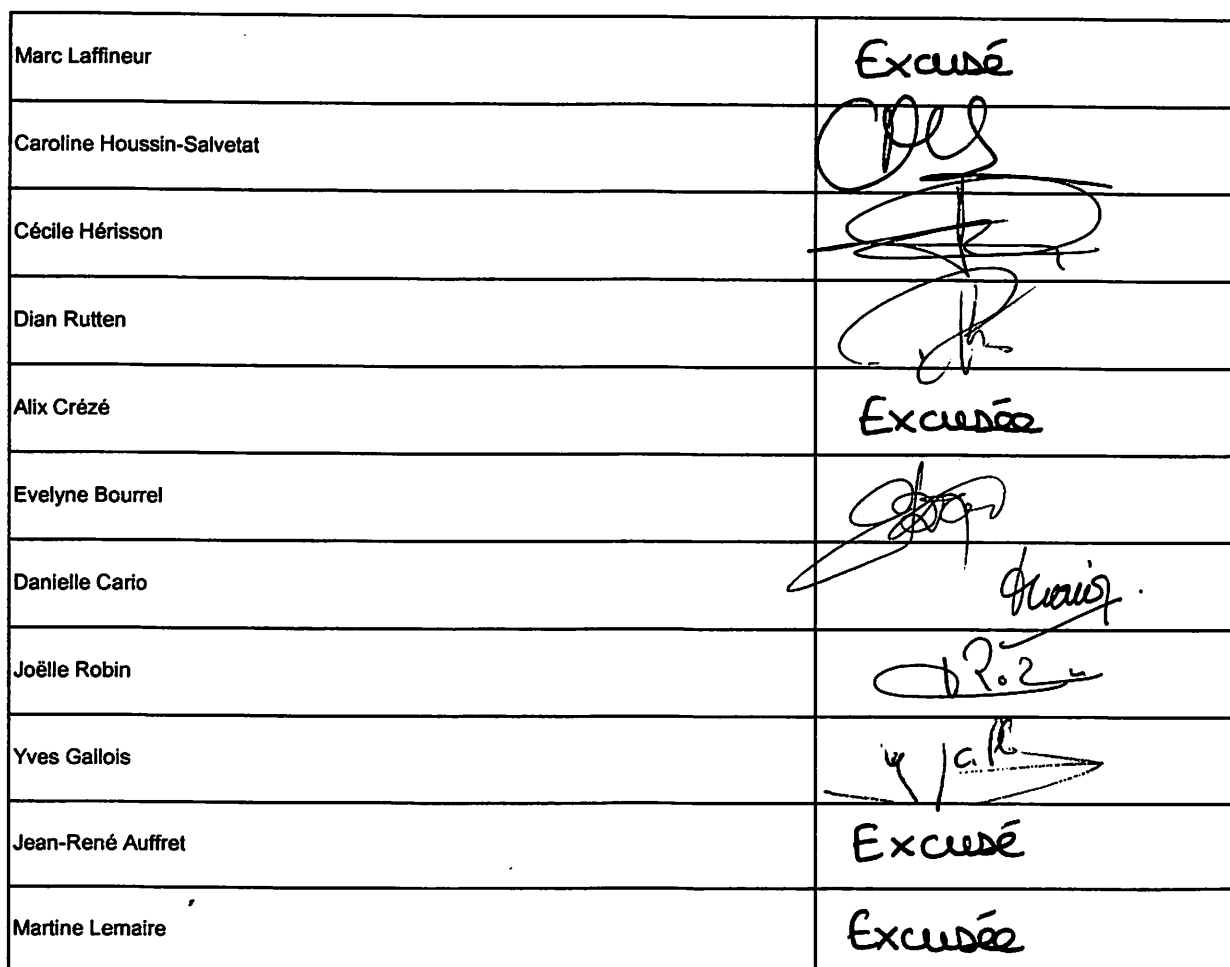 Marc Laffineur Excusé
Caroline Houssin-Salvetat
Cécile Hérisson
Dian Rutten
Alix Crézé Excusée
Evelyne Bourrel
Danielle Cario
Joëlle Robin
Yves Gallois
Jean-René Auffret Excusé
Martine Lemaire Excusée